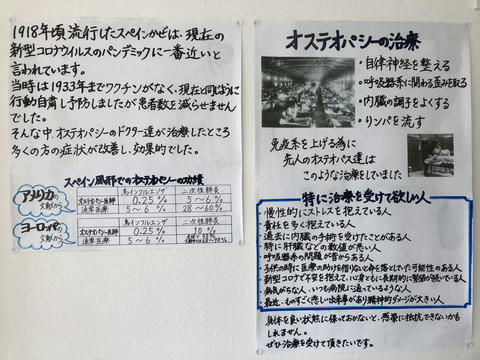 1918年頃流行したスペインかぜは、現在の
新型コロナウイルスのパンデミックに一番近いと
言われています。
当時は1933年までワクチンがなく、現在と同じように
行動自粛し予防しましたが患者数を減らせません
でした。
そんな中、オステオパシーのドクター達が治療したところ
多くの方の症状が改善し、効果的でした。
スペイン風邪でのオステオパシーの功績
アメリカの文献から
鳥インフルエンザ 二次性肺炎
オステオパシー医師 0.25% 5～6%
通常医療 5～6% 28～60%
ヨーロッパの文献から
鳥インフルエンザ 二次性肺炎
オステオパシー医師 0.25% 10%
通常医療 5～6%
オステオパシーの治療
・自律神経を整える
・呼吸器系に関わる歪みを取る
・内臓の調子をよくする
・リンパを流す
免疫系を上げる為に
先人のオステオパス達は
このような治療をしていました
特に治療を受けて欲しい人
・慢性的にストレスを抱えている人
・責任を多く抱えている人
・過去に内臓の手術を受けたことがある人
・特に肝臓などの数値が悪い人
・呼吸器系の問題が昔からある人
・子供の時に医療の助けを借りないと命を落としていた可能性のある人
・新型コロナで不安を抱えて、心身ともに長期的に緊張が続いている人
・病気がちな人、いつも病院に通っているような人
・最近、ものすごく悲しい出来事があり精神的ダメージが大きい人
身体を良い状態に保っておかないと、感染に抵抗できないかも
しれません。
ぜひ治療を受けて頂きたいです。